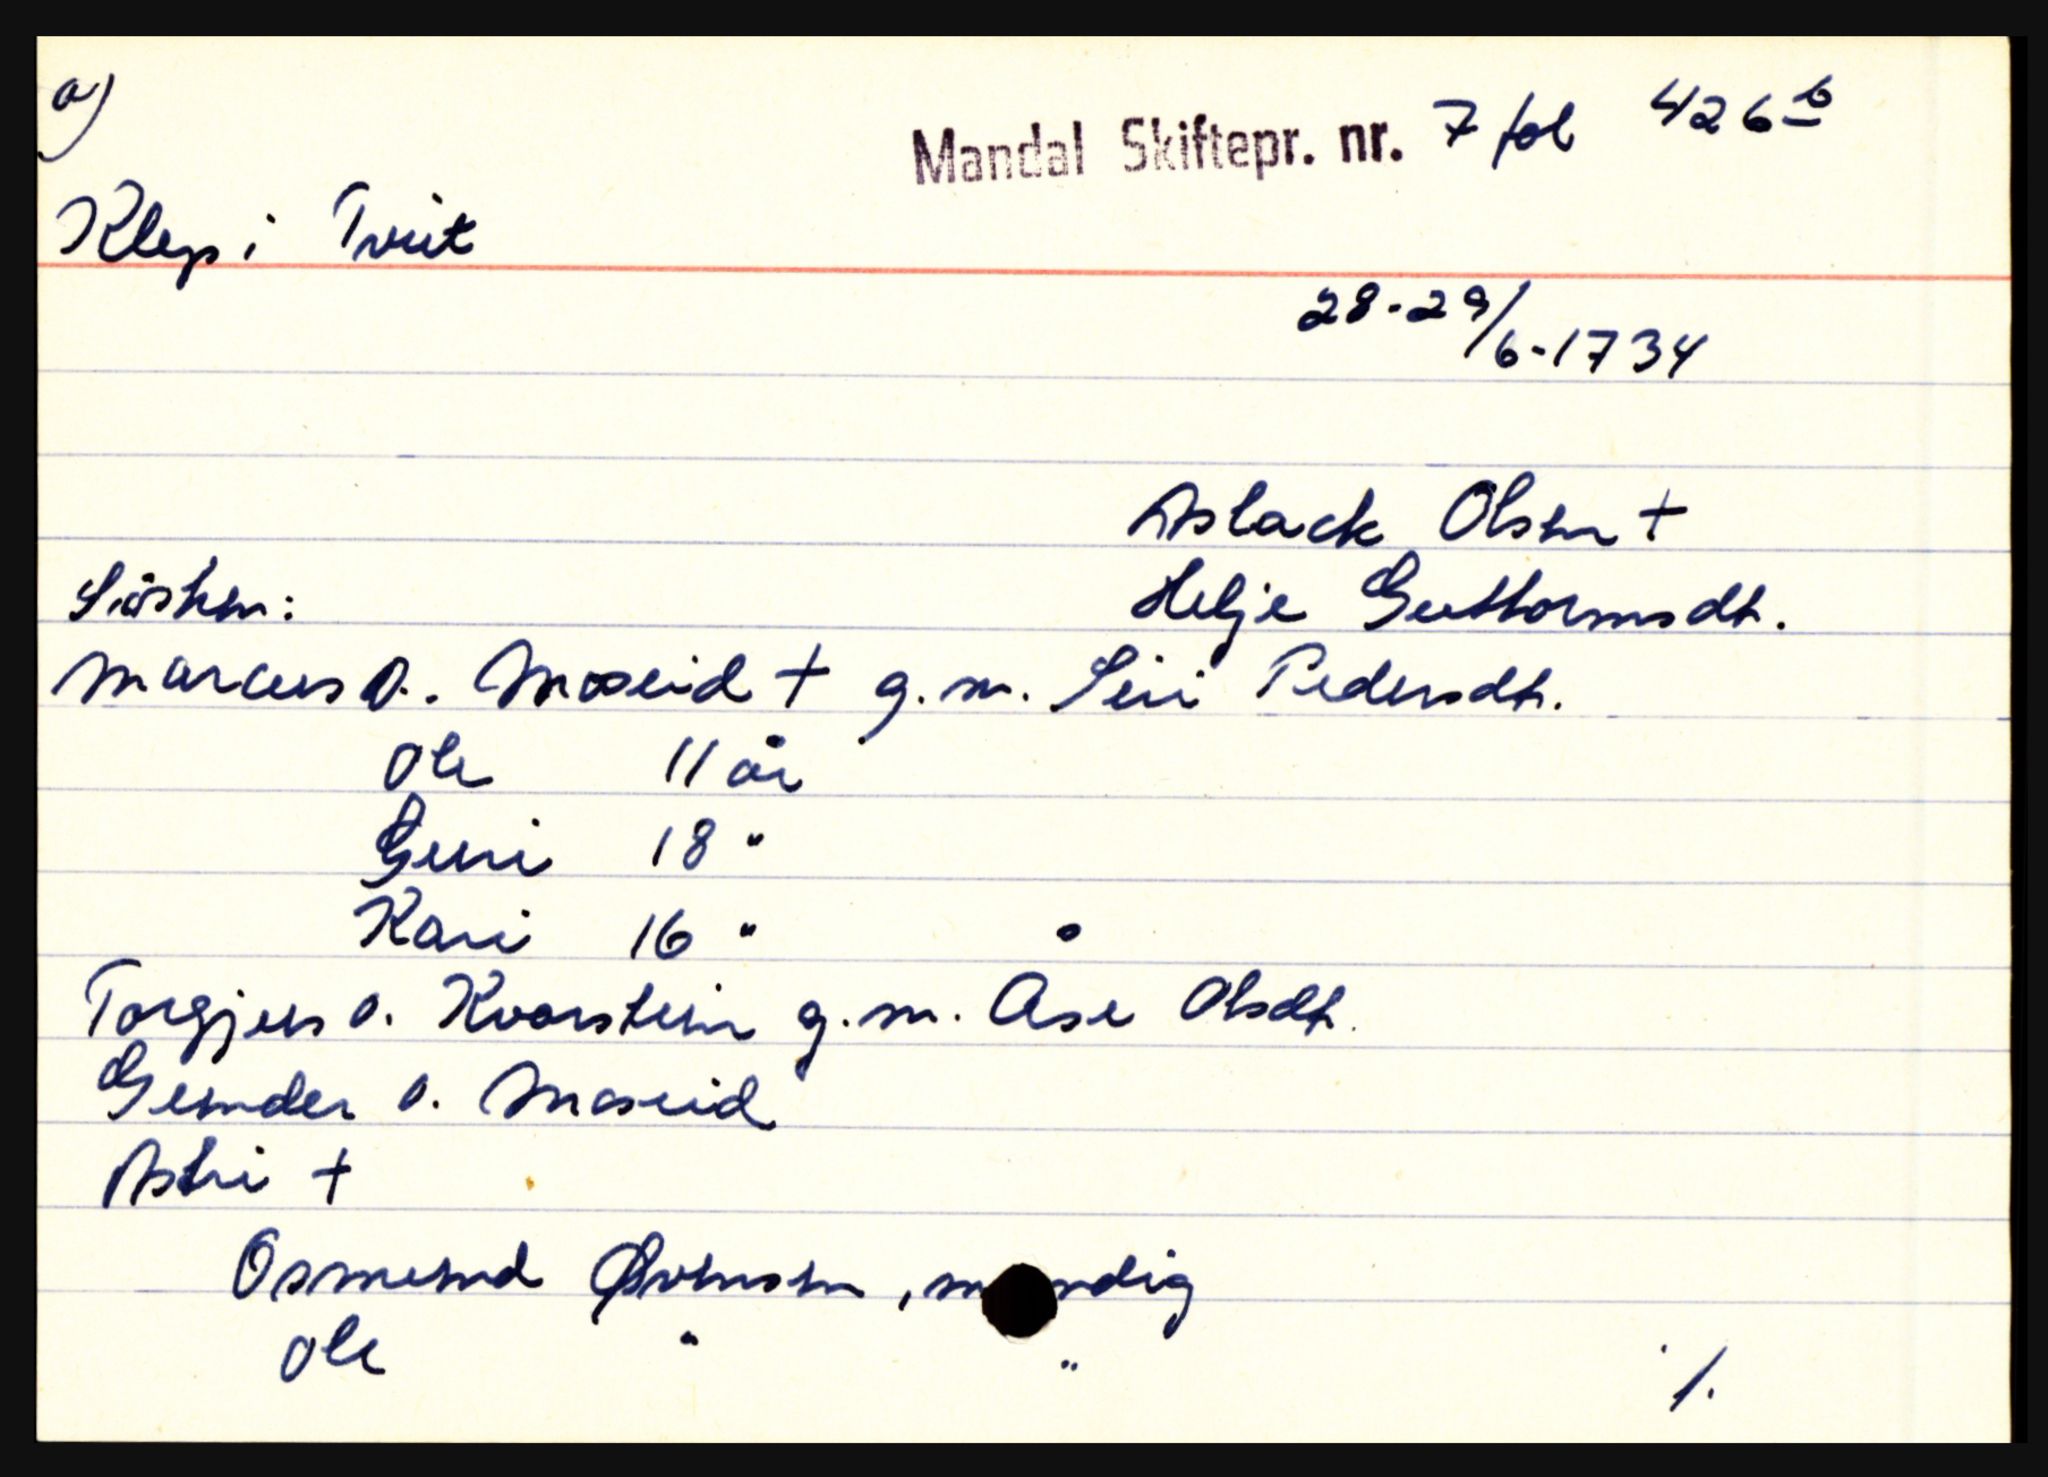 a)
Mandal Skiftepr. nr. 7 fol 426 b
Klep i Tveit
28-29/6-1734
Aslack Olsen +
Helje Guttormsdt.
Søsken:
Marcus O. Moseid + g.m. Siri Pedersdt.
Ole 11 år
Guri 18 "
Kari 16 "
Torgjus O. Kvarstein g.m. Åse Olsdt.
Gunder O. Moseid
Astri +
Osmund Øvensen, myndig
Ole " "
/.